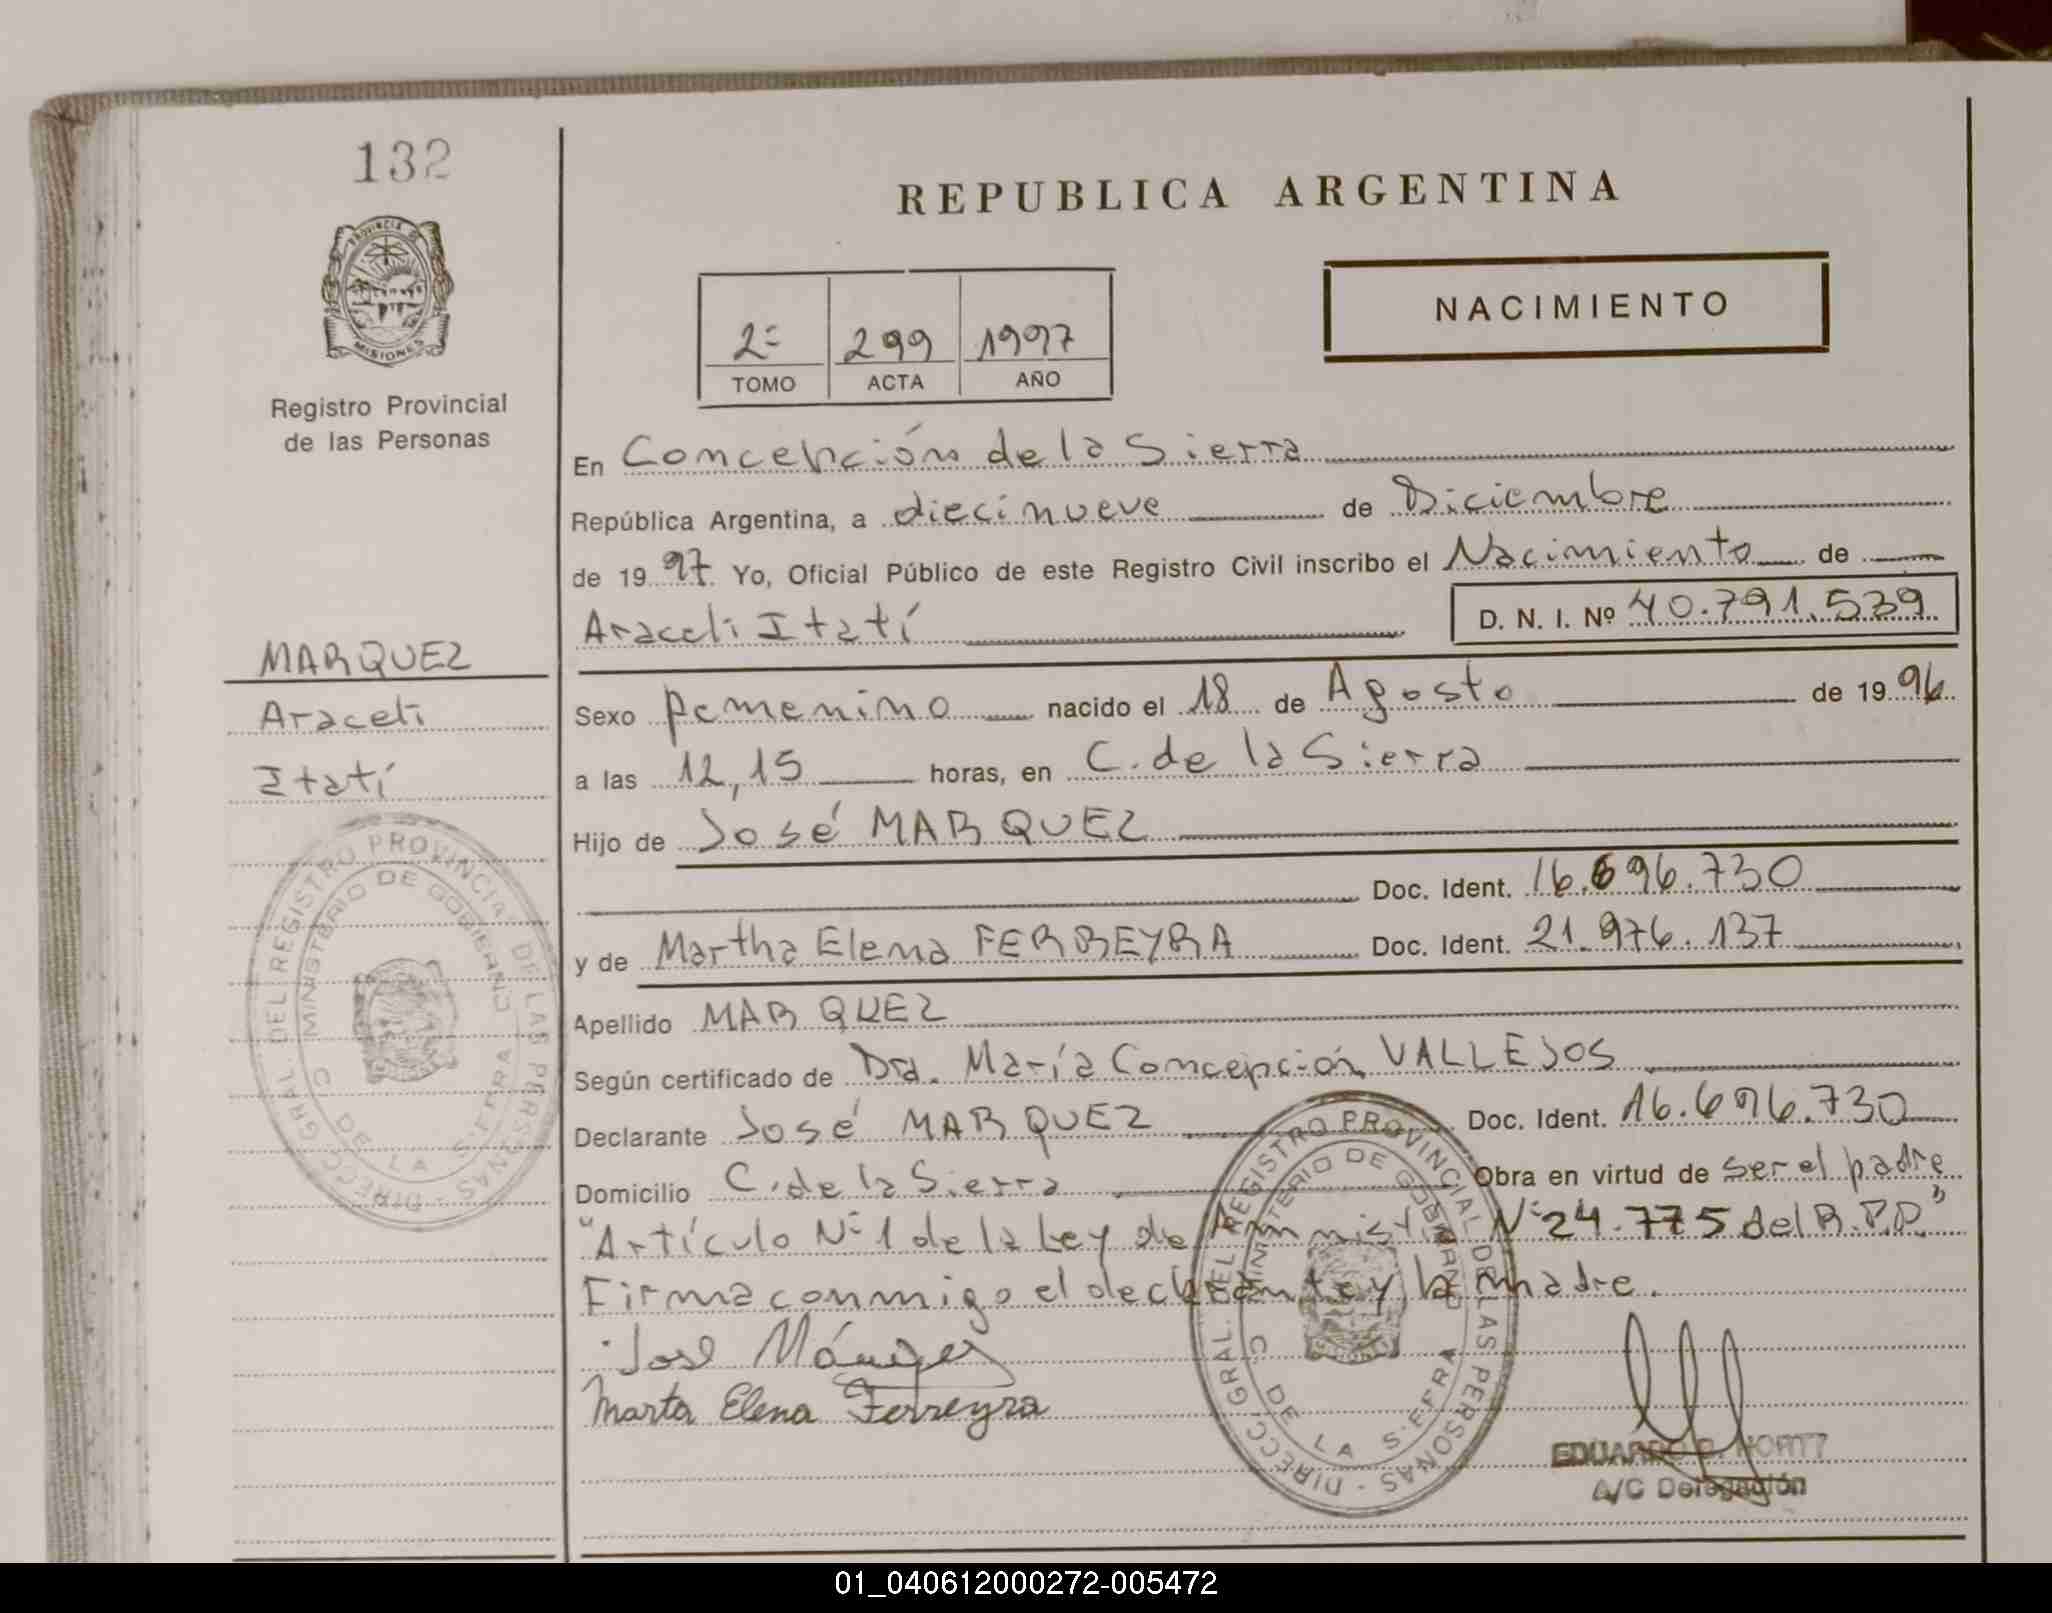 132
REPUBLICA ARGENTINA
PROVINCIA DE
MISIONES
NACIMIENTO
2= 299 1997
TOMO ACTA AÑO
Registro Provincial
de las Personas
En Concepción de la Sierra
República Argentina, a diecinueve de Diciembre
de 19 97 Yo, Oficial Público de este Registro Civil inscribo el Nacimiento de
Araceli Itatí D. N. I. Nº 40.791.539
MARQUEZ
Araceli
Itatí
Sexo femenino nacido el 18 de Agosto de 19 96
a las 12,15 horas, en C. de la Sierra
Hijo de José MARQUEZ
Doc. Ident. 16.696.730
y de Martha Elena FERREYRA Doc. Ident. 21.976.137
Apellido MARQUEZ
Según certificado de Dra. María Concepción VALLEJOS
Declarante José MARQUEZ Doc. Ident. 16.696.730
Domicilio C. de la Sierra Obra en virtud de ser el padre
"Artículo Nº 1 de la Ley de Amnistía Nº 24.775 del R.P.P."
Firma conmigo el declarante y la madre.
José Márquez
Marta Elena Ferreyra
DIRECC. GRAL. DEL REGISTRO PROVINCIAL DE LAS PERSONAS
MINISTERIO DE GOBIERNO
C. DE LA SIERRA
DIRECC. GRAL. DEL REGISTRO PROVINCIAL DE LAS PERSONAS
MINISTERIO DE GOBIERNO
C. DE LA SIERRA
EDUARDO
A/C Delegación
01_040612000272-005472